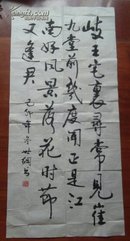 岐王宅里尋常見崔
九堂前幾度聞正是江
南好風景落花時節
又逢君